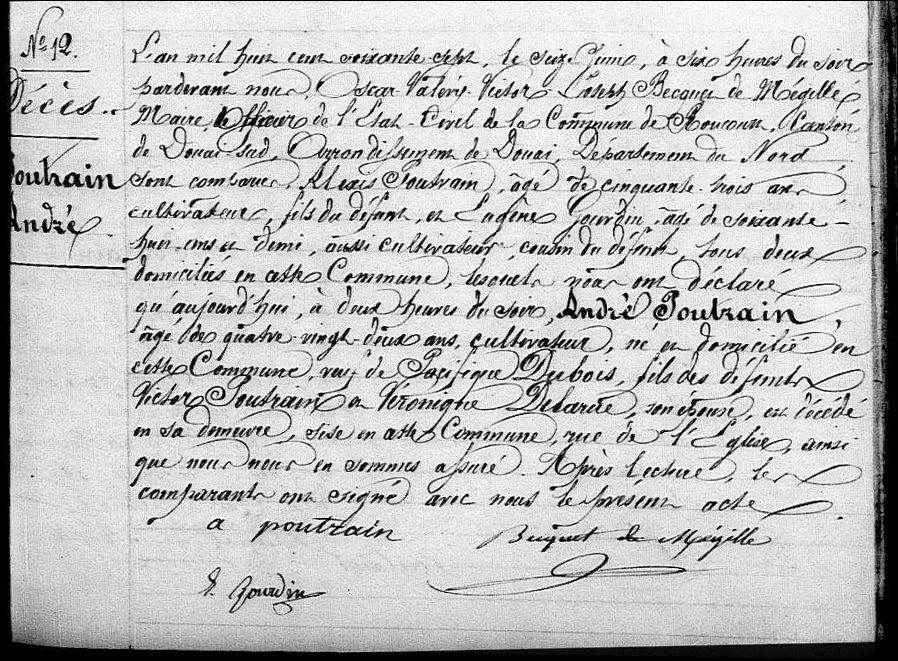 N° 12.
Décès.
Poutrain
André
L'an mil huit cent soixante-sept, le seize Juin, à six heures du soir
pardevant nous, Oscar Valéry Victor Joseph Becquet de Mégille
Maire, Officier de l'Etat-Civil de la Commune de Roucourt, Canton
de Douai-Sud, Arrondissement de Douai, Département du Nord
sont comparus, Alexis Poutrain, âgé de cinquante-trois ans
cultivateur, fils du défunt, et Eugène Gourdin, âgé de soixante-
huit ans et demi, aussi cultivateur, cousin du défunt, tous deux
domiciliés en cette Commune, lesquels nous ont déclaré
qu'aujourd'hui, à deux heures du soir, André Poutrain,
âgé de quatre-vingt-deux ans, cultivateur, né et domicilié en
cette Commune, veuf de Pacifique Dubois, fils des défunts
Victor Poutrain et Véronique Delarue, son épouse, est décédé
en sa demeure, sise en cette Commune, rue de l'Eglise, ainsi
que nous nous en sommes assuré. Après lecture, les
comparants ont signé avec nous le présent acte.
a poutrain
Becquet de Mégille
E. Gourdin